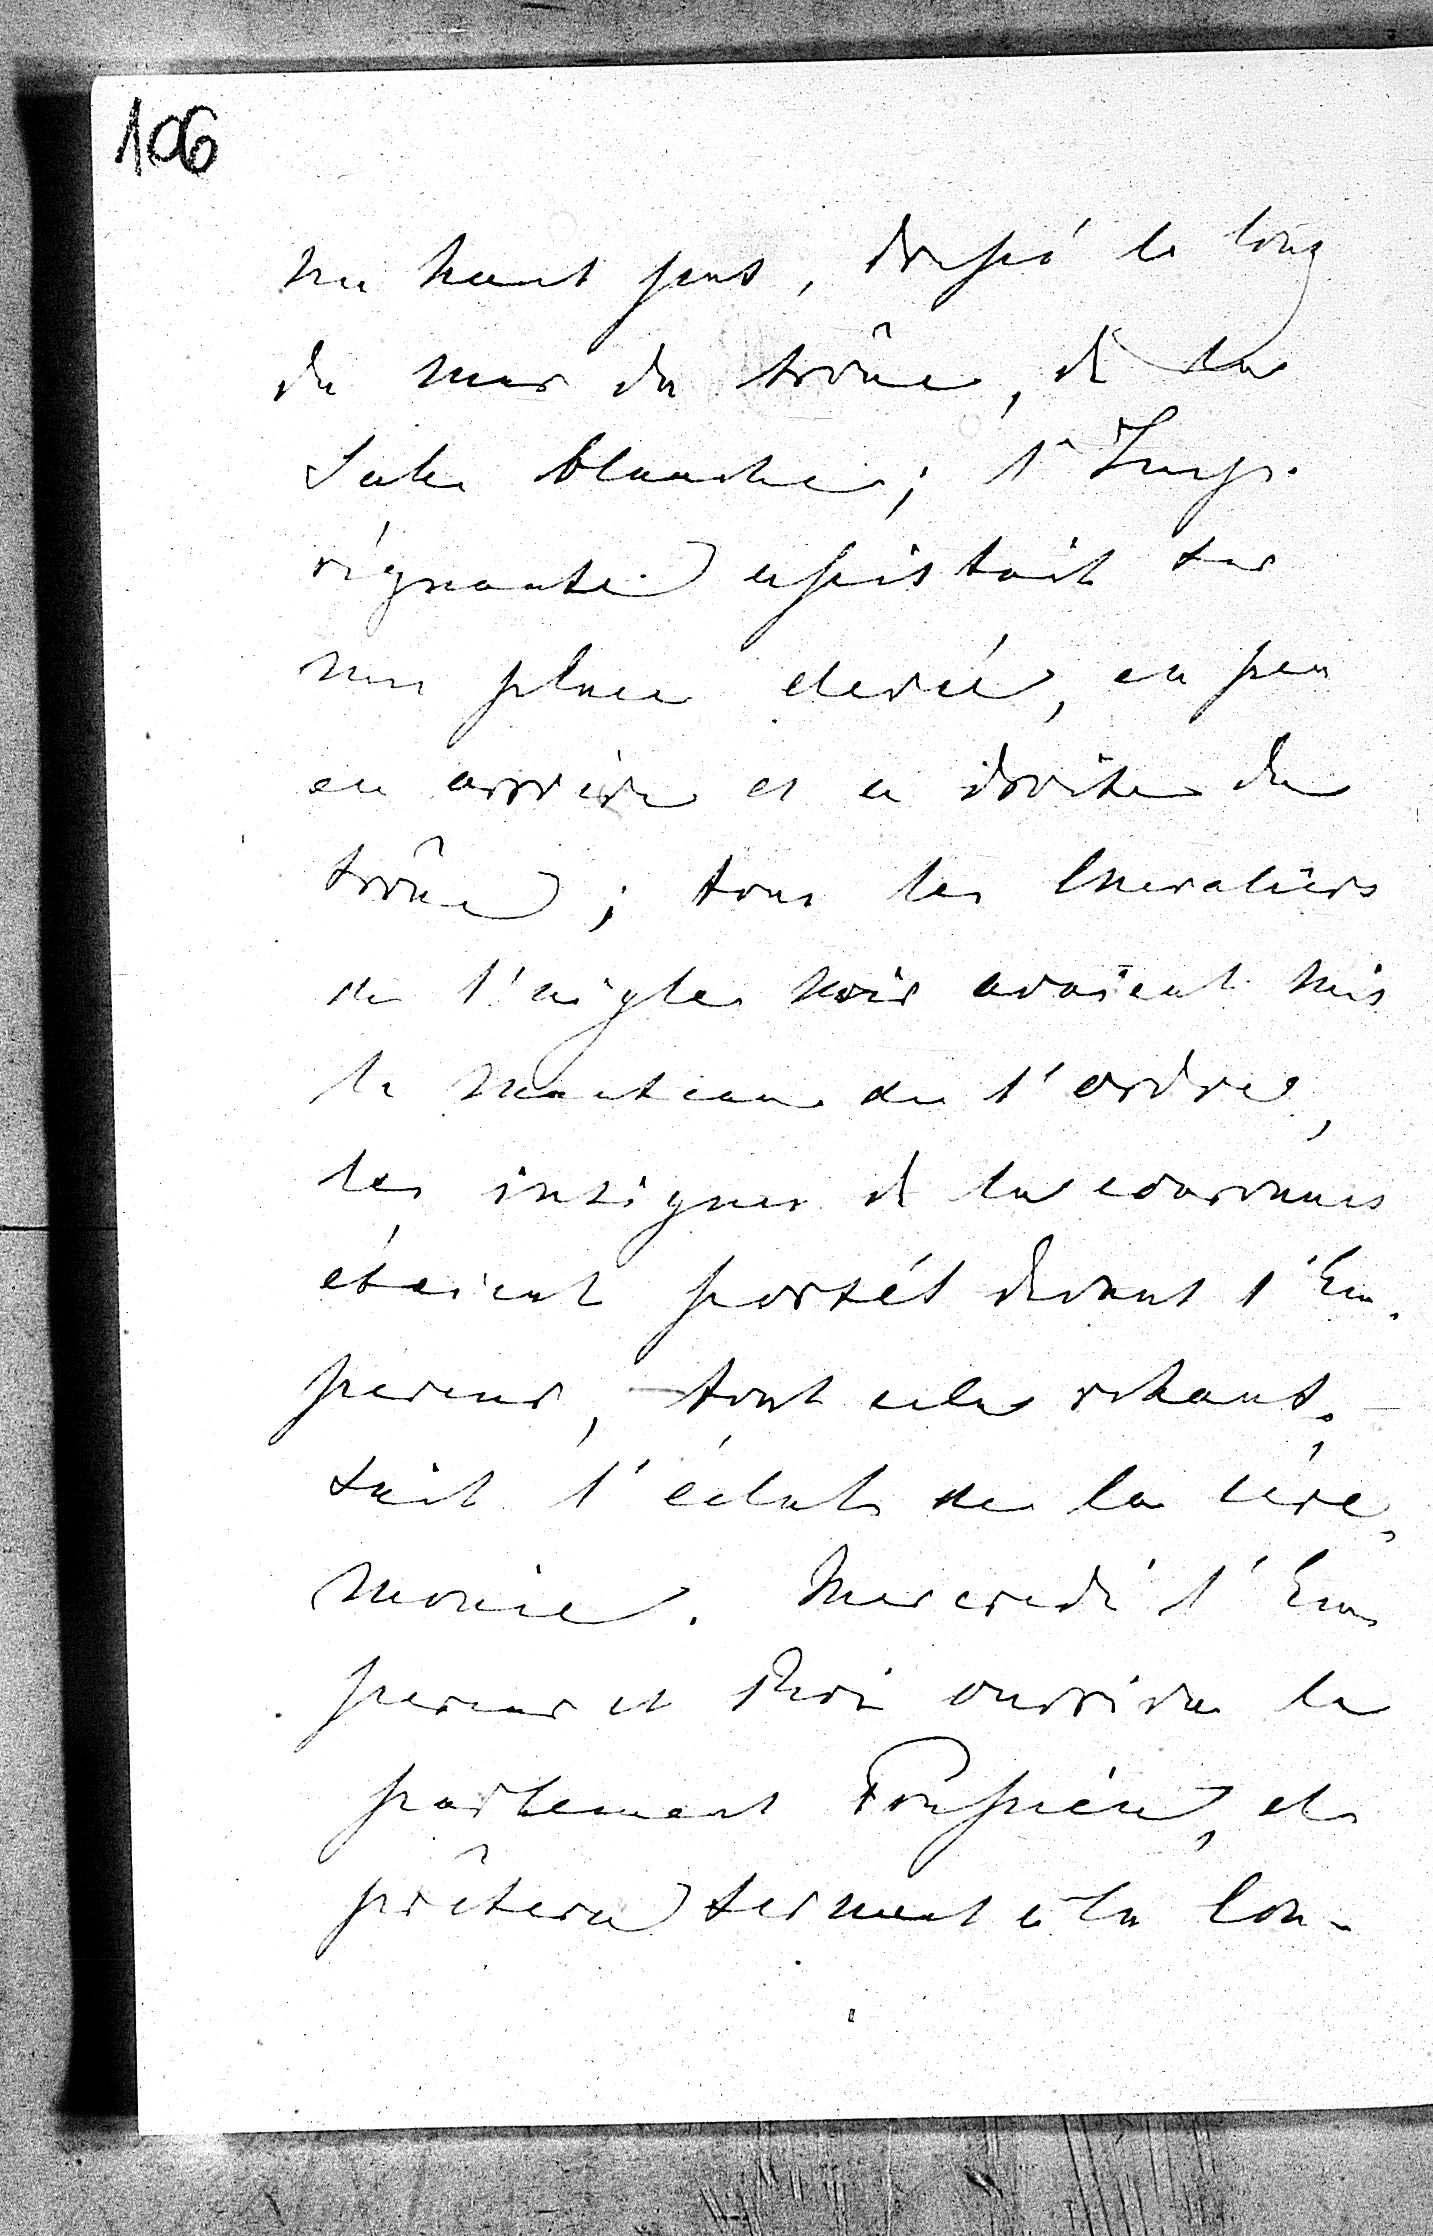 106
un haut pas, dressé le long
du mur du trône, de la
Salle blanche; l'Imp.
régnante assistait sur
une place elevée, en peu
en arrière et a droite du
trône; tous les Chevaliers
de l'aigle noir avaient mis
le manteau de l'ordre,
les insignes de la couronnes
étaient portés devant l'Em-
pereur, tout cela rehaus-
sait l'éclat de la céré-
monie. Mercredi l'Em
pereur et Roi ouvrira le
parlement Prussien, et
prêtera serment à la Con-